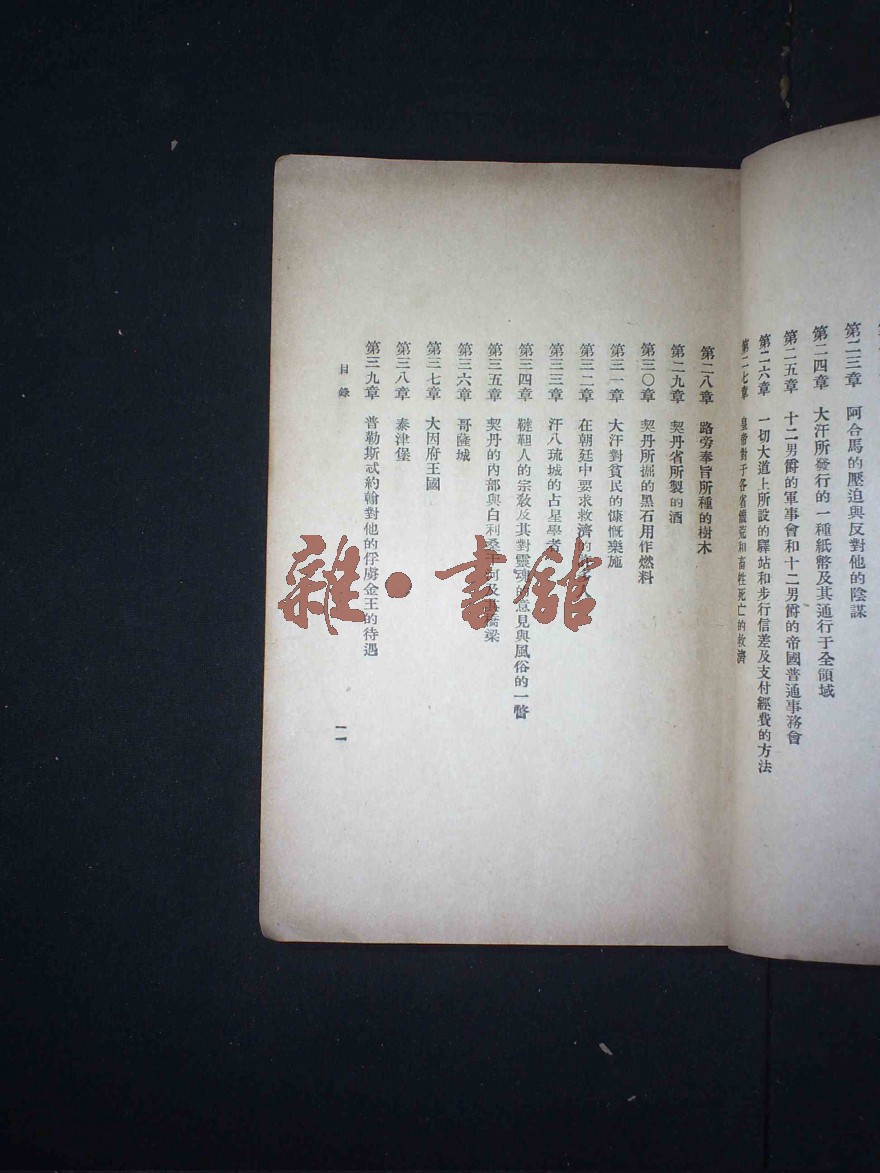 第二三章 阿合馬的壓迫與反對他的陰謀
第二四章 大汗所發行的一種紙幣及其通行于全領域
第二五章 十二男爵的軍事會和十二男爵的帝國普通事務會
第二六章 一切大道上所設的驛站和步行信差及支付經費的方法
第二七章 皇帝對于各省饑荒和畜牲死亡的救濟
第二八章 路旁奉旨所種的樹木
第二九章 契丹省所製的酒
第三〇章 契丹所掘的黑石用作燃料
第三一章 大汗對貧民的慷慨樂施
第三二章 在朝廷中要求救濟的
第三三章 汗八琉城的占星學者
第三四章 韃靼人的宗教及其對靈魂的意見與風俗的一瞥
第三五章 契丹的內部與白利桑干河及其橋梁
第三六章 哥隆城
第三七章 大因府王國
第三八章 泰津堡
第三九章 普勒斯忒約翰對他的俘虜金王的待遇
目錄
一一
雜·書館